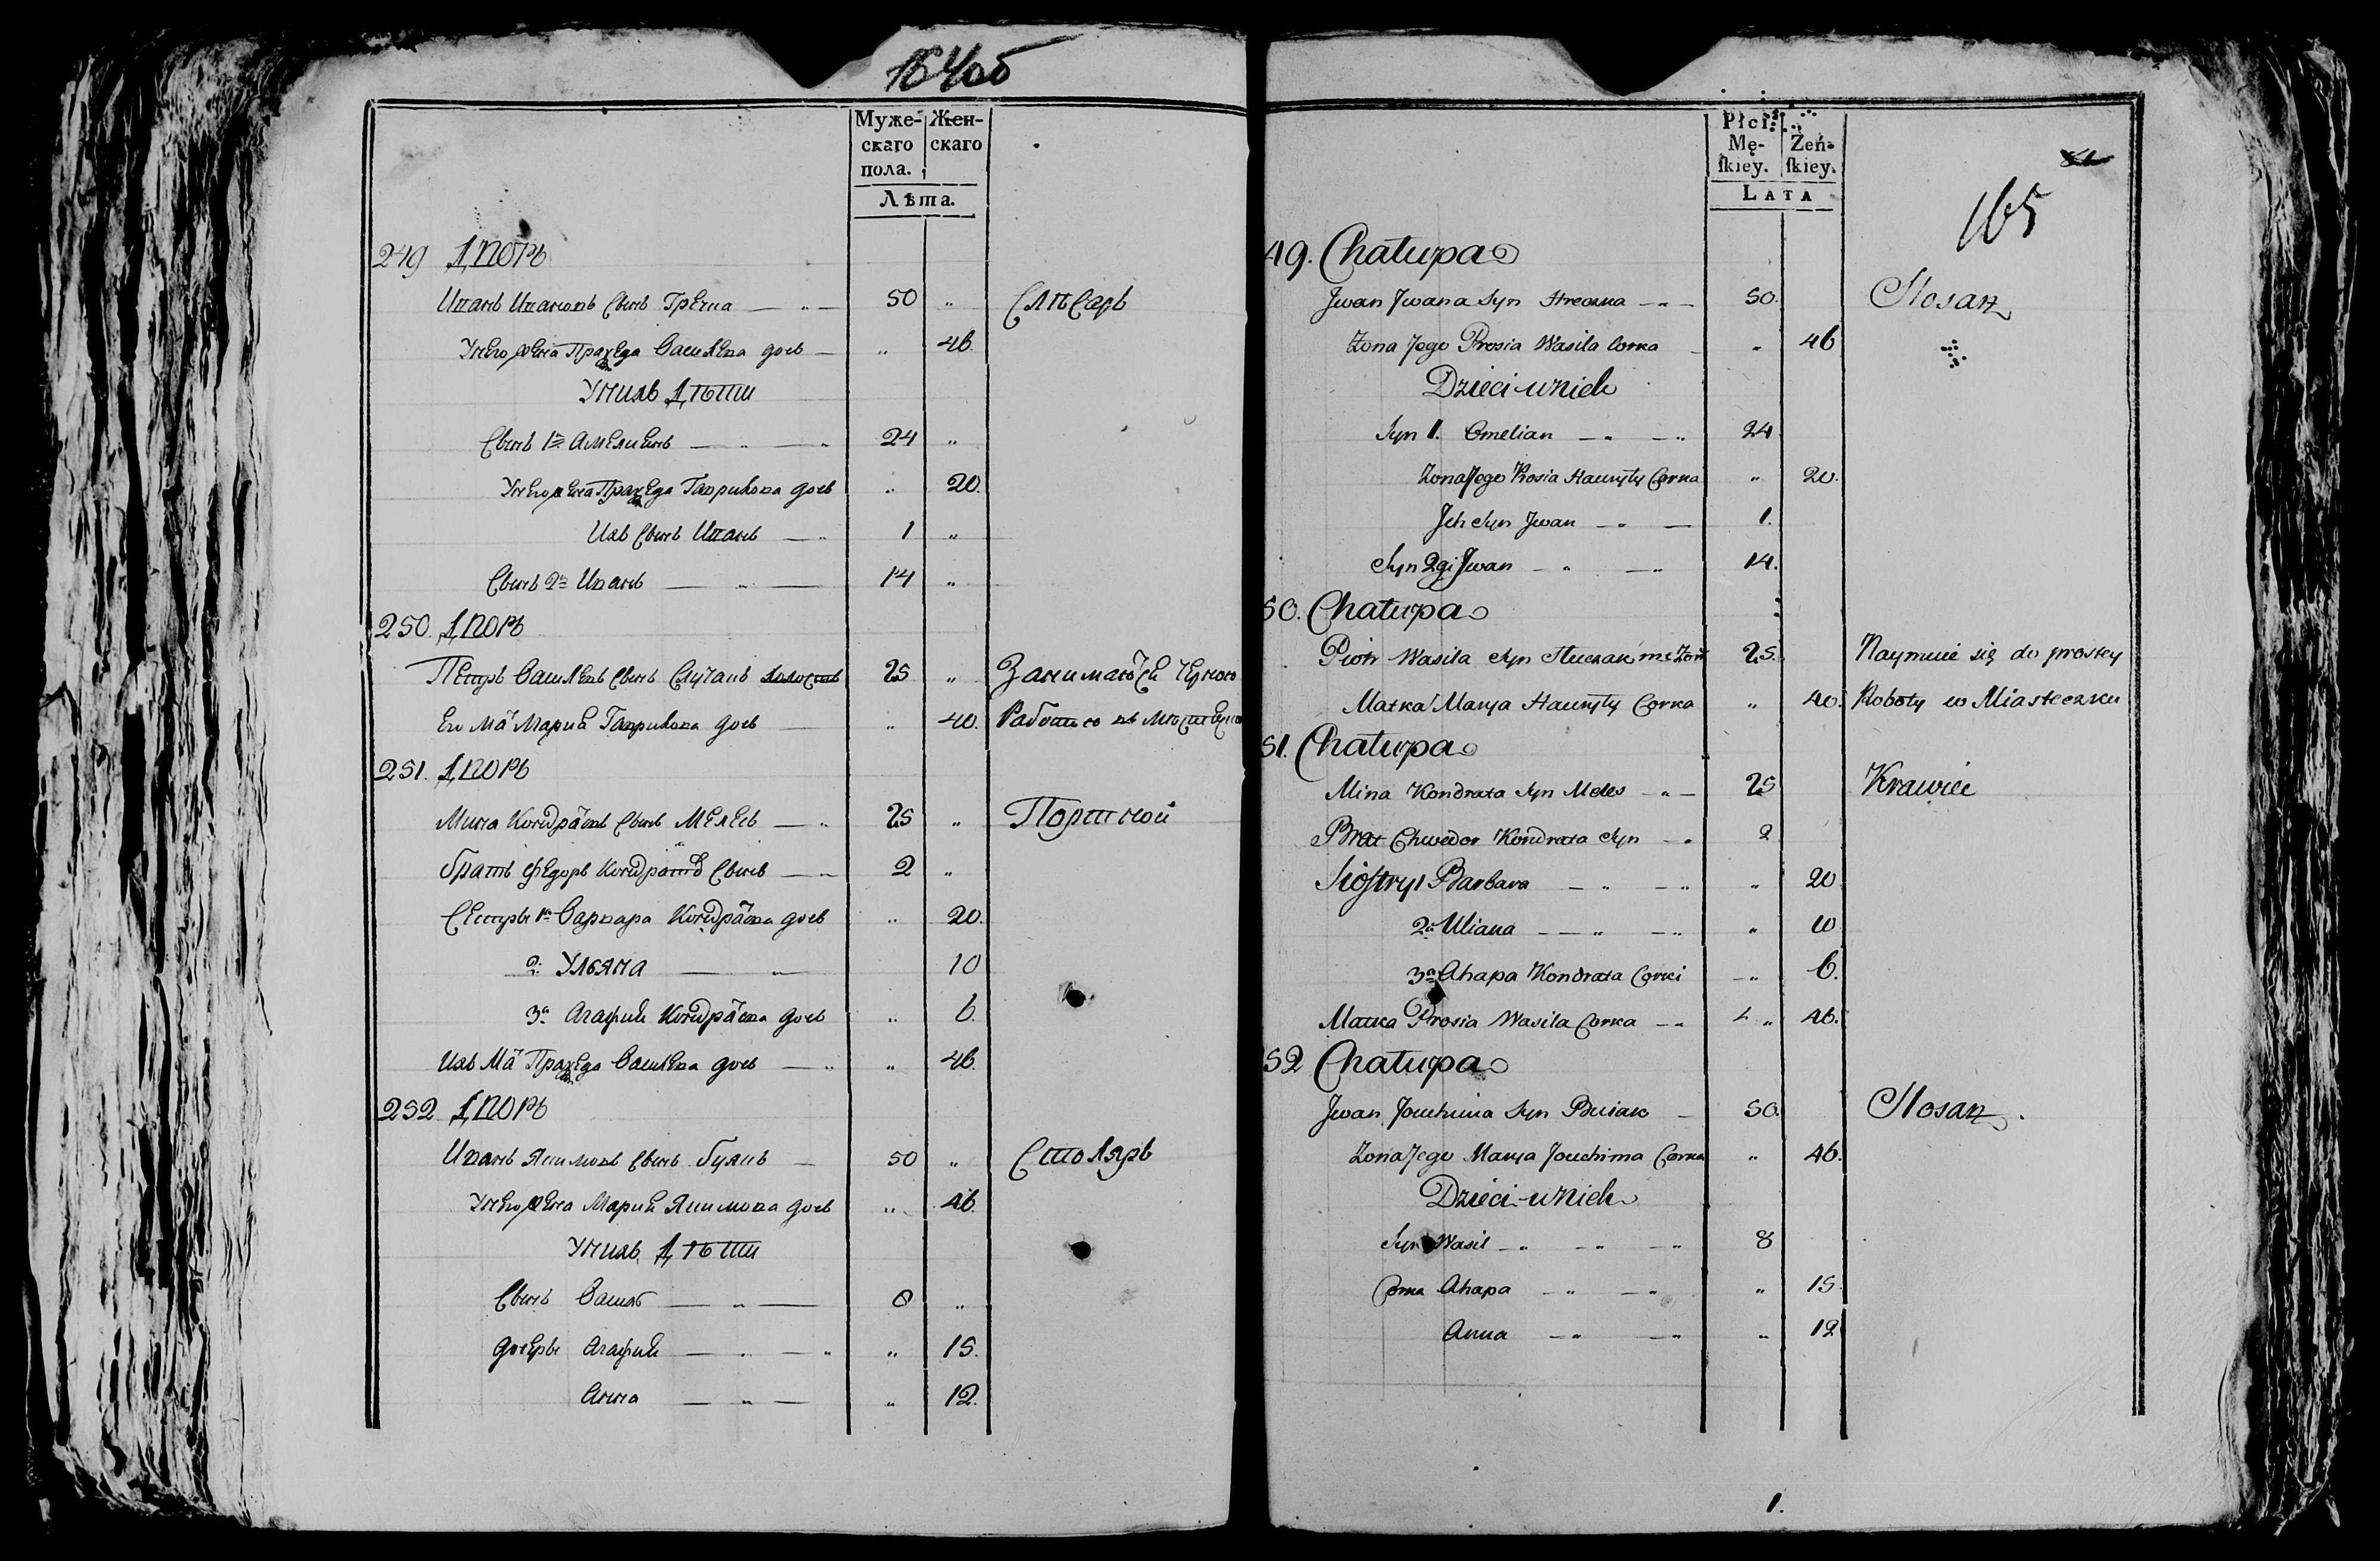 164об
Муже-
скаго
пола.
Жен-
скаго
Лѣта.
249 Дворъ
Иванъ Ивановъ Сынъ Гречка — „ — 50 „ Слѣсарь
У него жена Праxеда Васильева дочь — „ 46.
У нихъ Дѣти
Сынъ 1й Амельянъ — „ — 24 „
У него жена Праxеда Гаврилова дочь „ 20.
Ихъ Сынъ Иванъ — „ 1 „
Сынъ 2й Иванъ — „ — 14 „
250. Дворъ
Петръ Васильевъ Сынъ Случакъ холостъ 25 „ Занимается черною
Его Мать Мария Гаврилова дочь — „ 40. Работою въ
251. Дворъ
Мина Кондратовъ Сынъ Мелесъ — „ 25 „ Портной
братъ Федоръ Кондратовъ Сынъ — „ 2 „
Сестры 1я Варвара Кондратова дочь „ 20.
2. Ульяна — „ 10
3я Агафия Кондратова дочь „ 6.
Ихъ Мать Праxеда Васильева дочь — „ „ 46.
252 Дворъ
Иванъ Якимовъ Сынъ — 50 „ Столяръ
У него жена Мария Якимова дочь „ 46.
У нихъ Дѣти
Сынъ Василь — „ — 8 „
дочери Агафия — „ — „ „ 15.
Анна — „ — „ 12.
Płci
Mę-
ſkiey.
Żeń-
ſkiey.
LATA
165
49. Chałupa
Jwan Jwana Syn — „ — 50. Slosarz
Zona Jego Prosia Wasila Corka — „ 46
Dzieci u nich
Syn 1. Omelian — „ — „ 24
Zona Jego Prosia Hauryły Corka „ 20.
Jch Syn Jwan — „ — 1.
Syn 2gi Jwan — „ — „ 14.
50. Chałupa
Piotr Wasila Syn Sluczak nie Zon 25. Naymuie się do prostey
Matka Marya Hauryły Corka „ 40. Roboty w Miasteczku
51. Chałupa
Mina Kondrata Syn Meles — „ — 25 Krawiec
Brat Chwedor Kondrata Syn — „ 2
Siostry 1 Barbara — „ — „ „ 20
2a Uliana — — „ — „ „ 10
3a Ahapa Kondrata Corki — „ 6.
Matka Prosia Wasila Corka — „ „ 46.
52 Chałupa
Jwan Jouchima Syn — 50. Slosarz.
Zona Jego Marya Jouchima Corka „ 46.
Dzieci u nich
Syn Wasil — „ — „ — „ 8
Corka Ahapa — „ — „ „ 15
Anna — „ — „ „ 12
1.